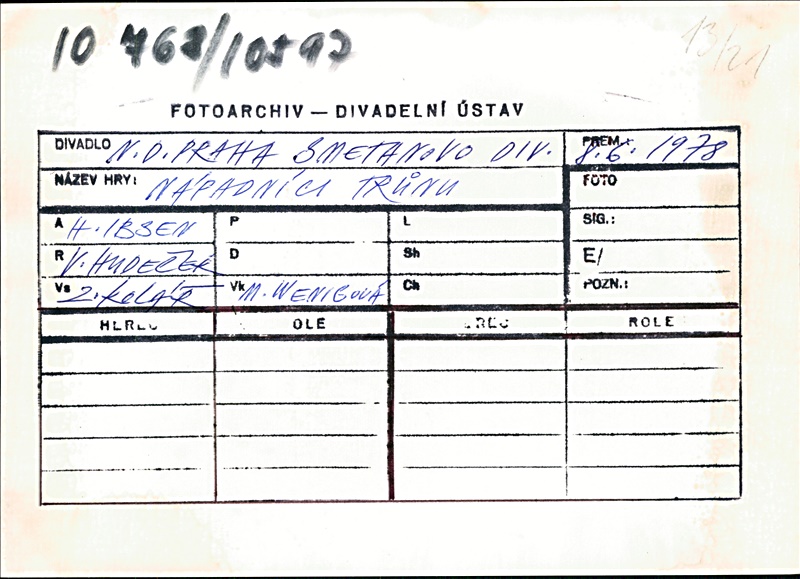 10 768/10897
13/21
FOTOARCHIV — DIVADELNÍ ÚSTAV
DIVADLO N.D. PRAHA SMETANOVO DIV. PREM.: 8.6. 1978
NÁZEV HRY: NÁPADNÍCI TRŮNU FOTO
A H. IBSEN P L SIG.:
R V. HUDEČEK D Sh E/
Vs Z. Kolář Vk M. WENIGOVÁ Ch POZN.:
HEREC OLE EREC ROLE